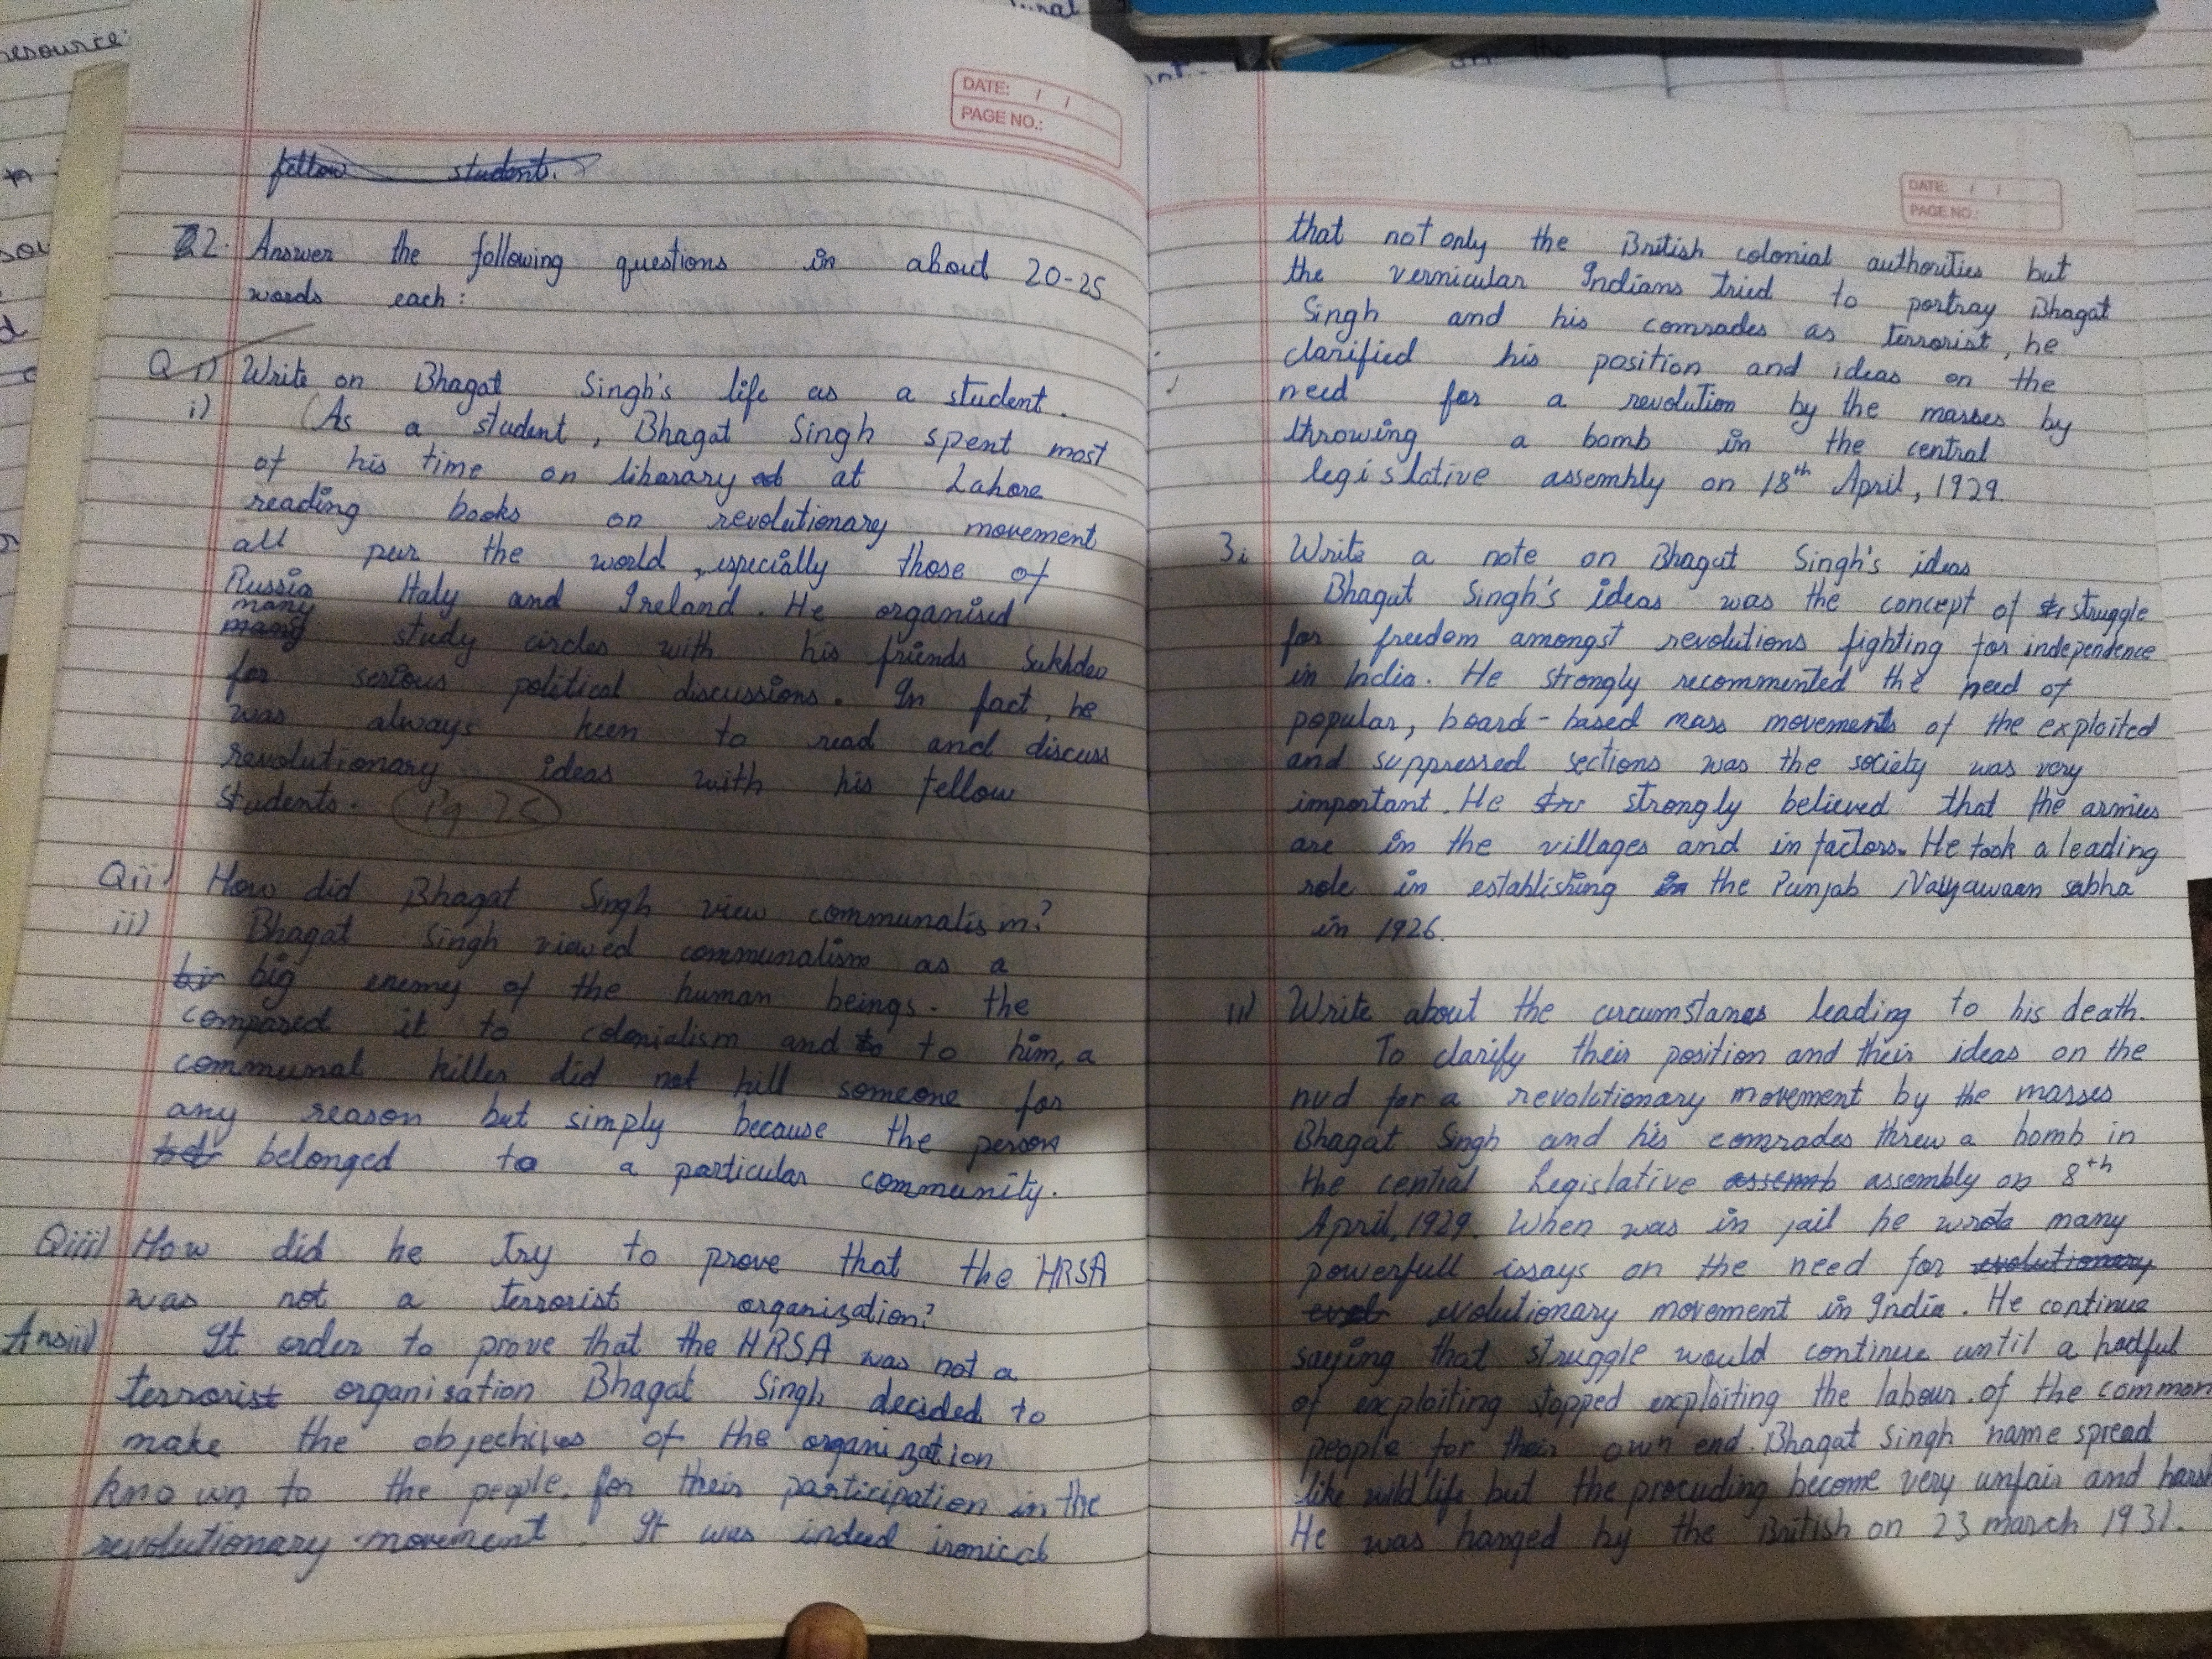 DATE: / /
PAGE NO.:
fellow student.
Q2. Answer the following questions in about 20-25
words each:
Q i) Write on Bhagat Singh's life as a student.
i) (As a student, Bhagat Singh spent most
of his time on liberary at Lahore
reading books on revolutionary movement
all pver the world, especially those of
Russia Italy and Ireland. He organised
many
many study circles with his friends Sukhdev
for serious political discussions. In fact, he
was always keen to read and discuss
revolutionary ideas with his fellow
students. Pg 25
Qii) How did Bhagat Singh view communalism?
ii) Bhagat Singh viewed communalism as a
bi big enemy of the human beings. the
compared it to colonialism and to to him, a
communal killer did not kill someone for
any reason but simply because the person
belonged to a particular community.
Qiii) How did he try to prove that the HRSA
was not a terrorist organization?
Ansiii) It order to prove that the HRSA was not a
terrorist organisation Bhagat Singh decided to
make the objectives of the organization
known to the people, for their participation in the
revolutionary movement. It was indeed ironical
DATE: / /
PAGE NO.:
that not only the British colonial authorities but
the vernicular Indians tried to portray Bhagat
Singh and his comrades as terrorist, he
clarified his position and ideas on the
need for a revolution by the masses by
throwing a bomb in the central
legislative assembly on 18th April, 1929.
3i Write a note on Bhagat Singh's ideas
Bhagat Singh's ideas was the concept of struggle
for freedom amongst revolutions fighting for independence
in India. He strongly recommented the need of
popular, board-based mass movements of the exploited
and suppressed sections was the society was very
important. He str strongly believed that the armies
are in the villages and in factors. He took a leading
role in establishing in the Punjab Naujawaan sabha
in 1926.
ii) Write about the circumstances leading to his death.
To clarify their position and their ideas on the
nud for a revolutionary movement by the masses
Bhagat Singh and his comrades threw a bomb in
the central Legislative assemb assembly on 8th
April, 1929. When was in jail he wrote many
powerfull issays on the need for evolutionary
evol evolutionary movement in India. He continue
saying that struggle would continue until a hadful
of exploiting stopped exploiting the labour of the common
people for their own end. Bhagat Singh name spread
like wild life but the procuding become very unfair and harsh
He was hanged by the British on 23 march 1931.